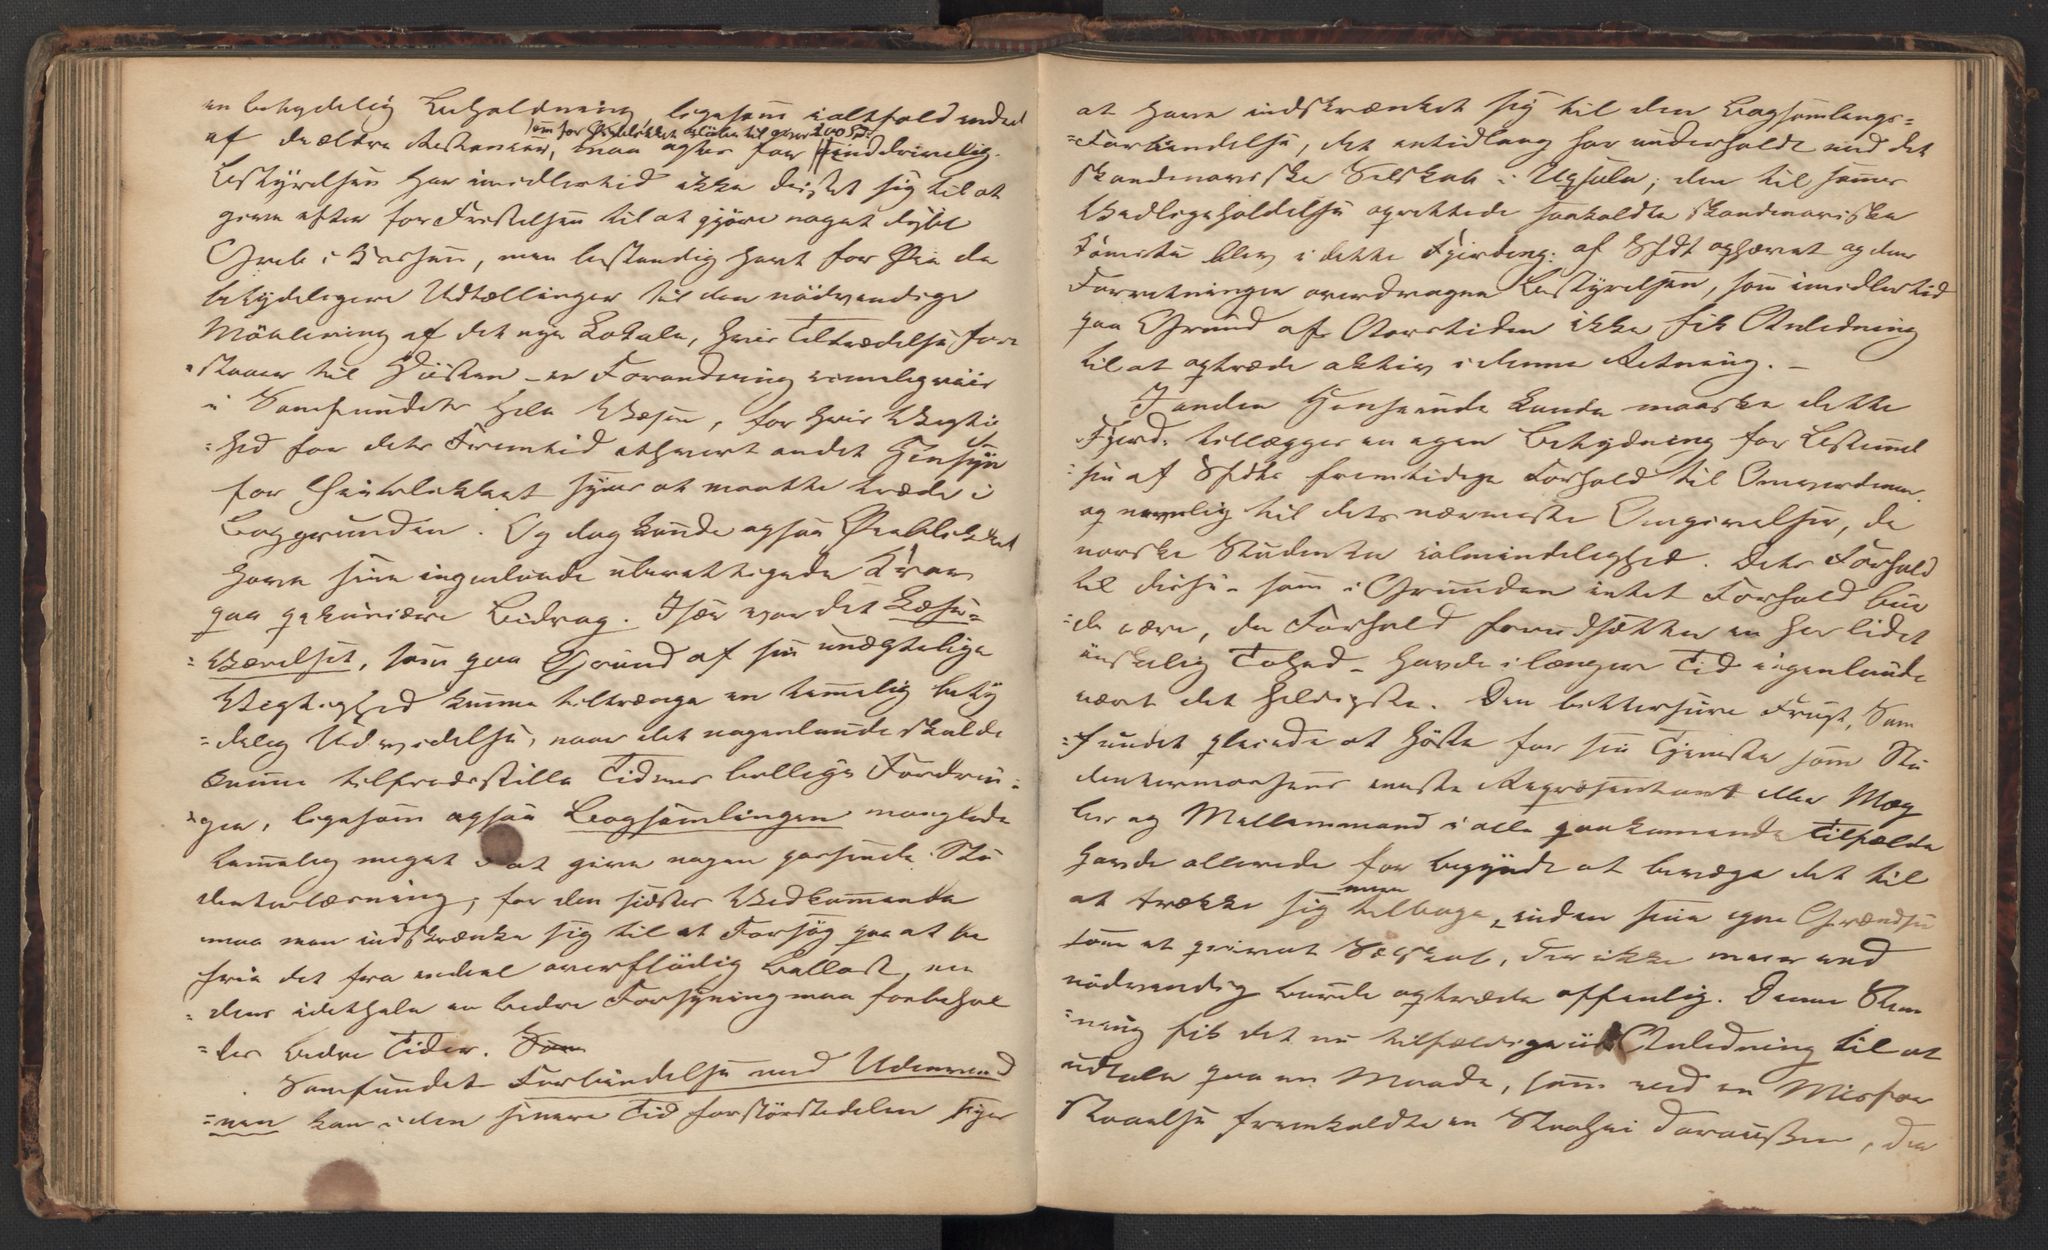 en betydelig Beholdning ligesom i altfald endeel
som for Øieblikket beløber til over 200 Spd.
af de ældre Restancer, maa agtes for uinddrivelig.
Bestyrelsen har imidlertid ikke dristet sig til at
give efter for Fristelsen til at gjöre noget dybt
Greb i Kassen, men bestandig havt for Øie de
betydeligere Udtællinger til den nödvendige
Möblering af det nye Lokale, hvis Tiltrædelse fore
=staaer til Hösten – en Forandring rimeligviis
i Samfundets hele Væsen, for hvis Vigtig
=hed for dets Fremtid ethvert andet Hensyn
for Øieblikket synes at maatte træde i
Baggrunden. Og dog kunde ogsaa Øieblikket
have sine ingenlunde uberettigede Krav
paa pekuniære Bidrag. Især var det Læse=
=Værelset, som paa Grund af sin unægtelige
Vigtighed kunne tiltrænge en temmelig bety
=delig Udvidelse, naar det nogenlunde skulde
kunne tilfredsstille Tidens billige Fordrin=
=ger, ligesom ogsaa Bogsamlingen manglede
temmelig meget i at give nogen passende Stu
denterlæsning; for den sidstes Vedkommende
maa man indskrænke sig til et Forsög paa at be
frie det fra endeel overflödig Ballast, me
=dens idethele en bedre Forsyning maa forbehol
=des bedre Tider. Som
Samfundet Forbindelse med Udenverd
=nen kan i den senere Tid forstörstedelen siges
at have indskrænket sig til den Bogsamlings=
=Forbindelse, det entidlang har underholdt med det
skandinaviske Selskab i Upsala; den til sammes
Vedligeholdelse oprettede saakaldte skandinaviske
Komite blev i dette Fjerding: af Sfdt ophævet og dens
Forretninger overdragne Bestyrelsen, som imidlertid
paa Grund af Aarstiden ikke fik Anledning
til at optræde aktiv i denne Retning. –
I anden Henseende kunde maaske dette
Fjerd: tillægges en egen Betydning for Bestemmel
=sen af Sfdts fremtidige Forhold til Omverdenen
og navnlig til dets nærmeste Omgivelser, de
norske Studenter i almindelighed. Dets Forhold
til disse – som i Grunden intet Forhold bur
=de være, da Forhold forudsætter en her lidet
önskelig Tohed – havde i længere Tid ingenlunde
været det heldigste. Den bittersure Frugt, Sam
=fundet pleiede at höste for sin Tjeneste som Stu
dentermassens eneste Repræsentant eller Mæg
ler og Mellemmand i alle paakommende Tilfælde
havde allerede for begyndt at bevæge det til
mere
at trække sig tilbage inden sine egne Grændser
som et privat Selskab, der ikke mere end
nödvendig burde optræde offenlig. Denne Stem
=ning fik det nu tilfældigviis Anledning til at
udtale paa en Maade, som ved en Misfor
staaelse fremkaldte en Storhei daraussen, der